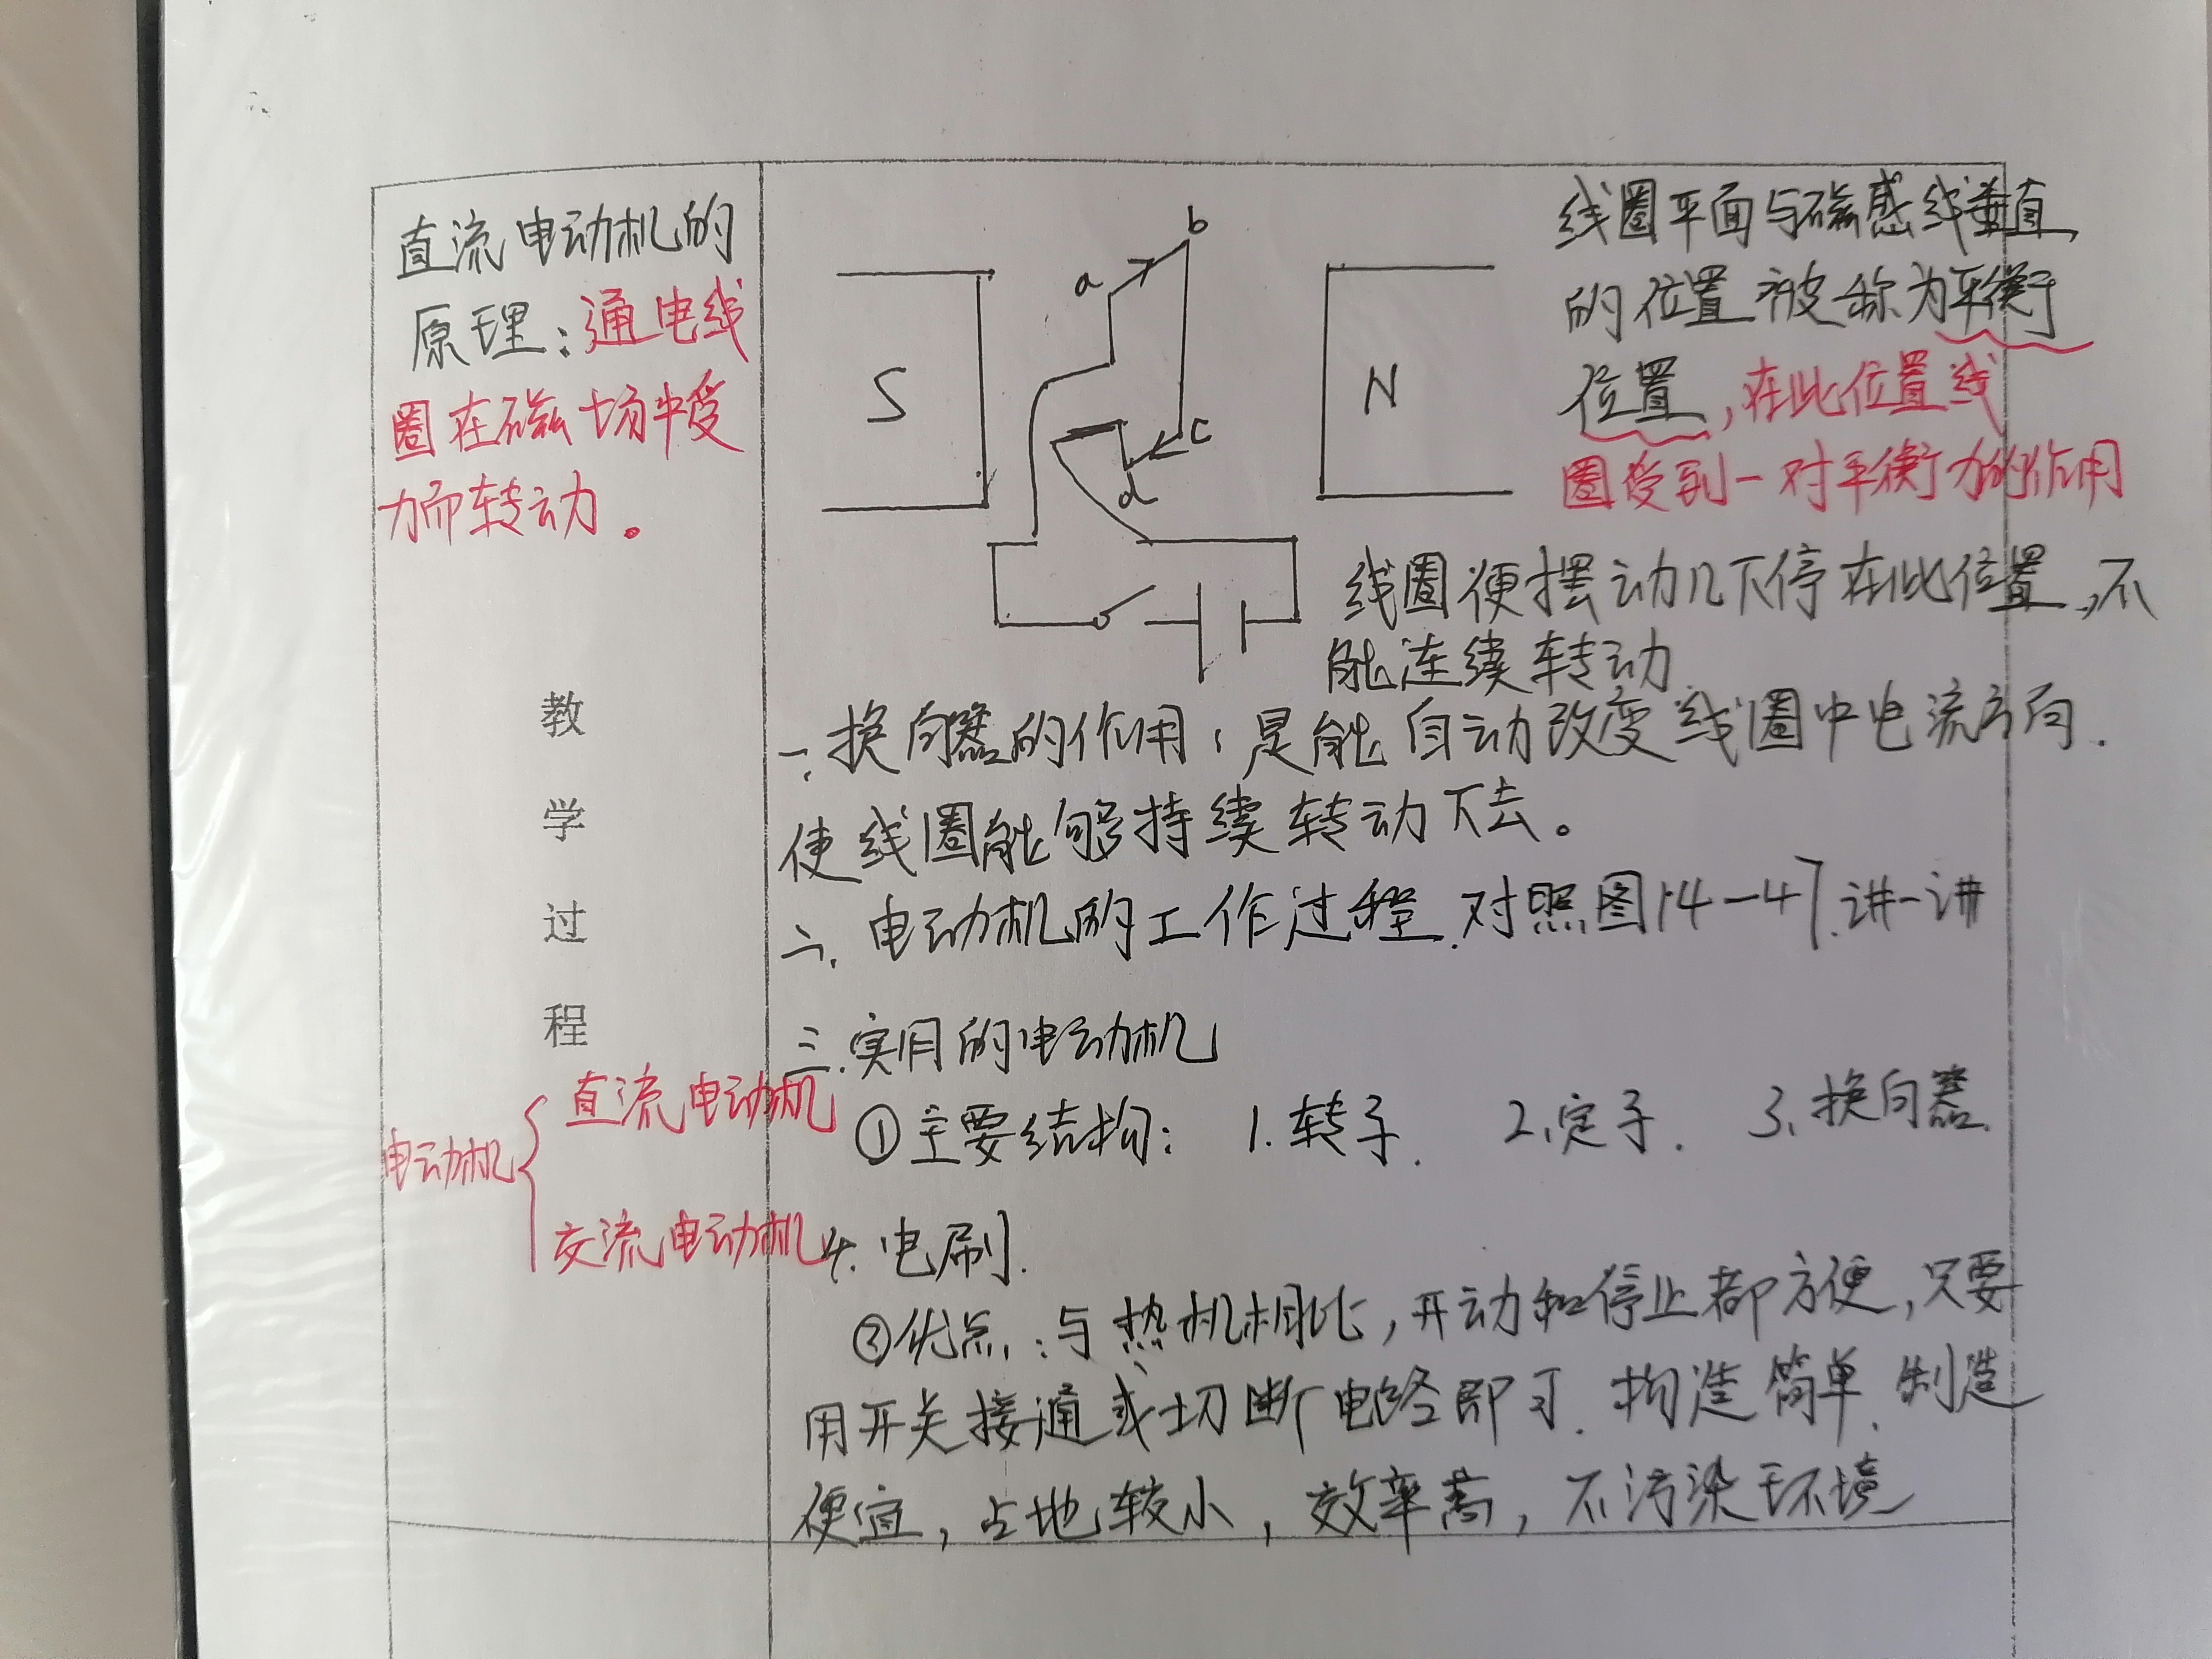 直流电动机的
原理：通电线
圈在磁场中受
力而转动。
教
学
过
程
电动机
直流电动机
交流电动机
S
a
b
c
d
N
线圈平面与磁感线垂直
的位置被称为平衡
位置，在此位置线
圈受到一对平衡力的作用
线圈便摆动几下停在此位置，不
能连续转动
一、换向器的作用：是能自动改变线圈中电流方向.
使线圈能够持续转动下去。
二、电动机的工作过程.对照图14-47.讲一讲
三.实用的电动机
①主要结构：1.转子. 2、定子. 3、换向器.
4.电刷.
②优点：与热机相比，开动和停止都方便，只要
用开关接通或切断电路即可.构造简单、制造
便宜，占地较小，效率高，不污染环境